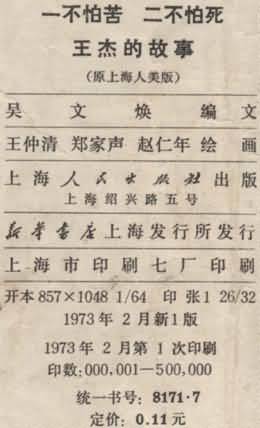 一不怕苦 二不怕死
王杰的故事
(原上海人美版)
吴文焕编文
王仲清 郑家声 赵仁年 绘画
上海人民出版社出版
上海绍兴路五号
新华书店上海发行所发行
上海市印刷七厂印刷
开本 857×1048 1/64 印张 1 26/32
1973年 2月新1版
1973年 2月第1次印刷
印数:000,001—500,000
统一书号: 8171·7
定价: 0.11元